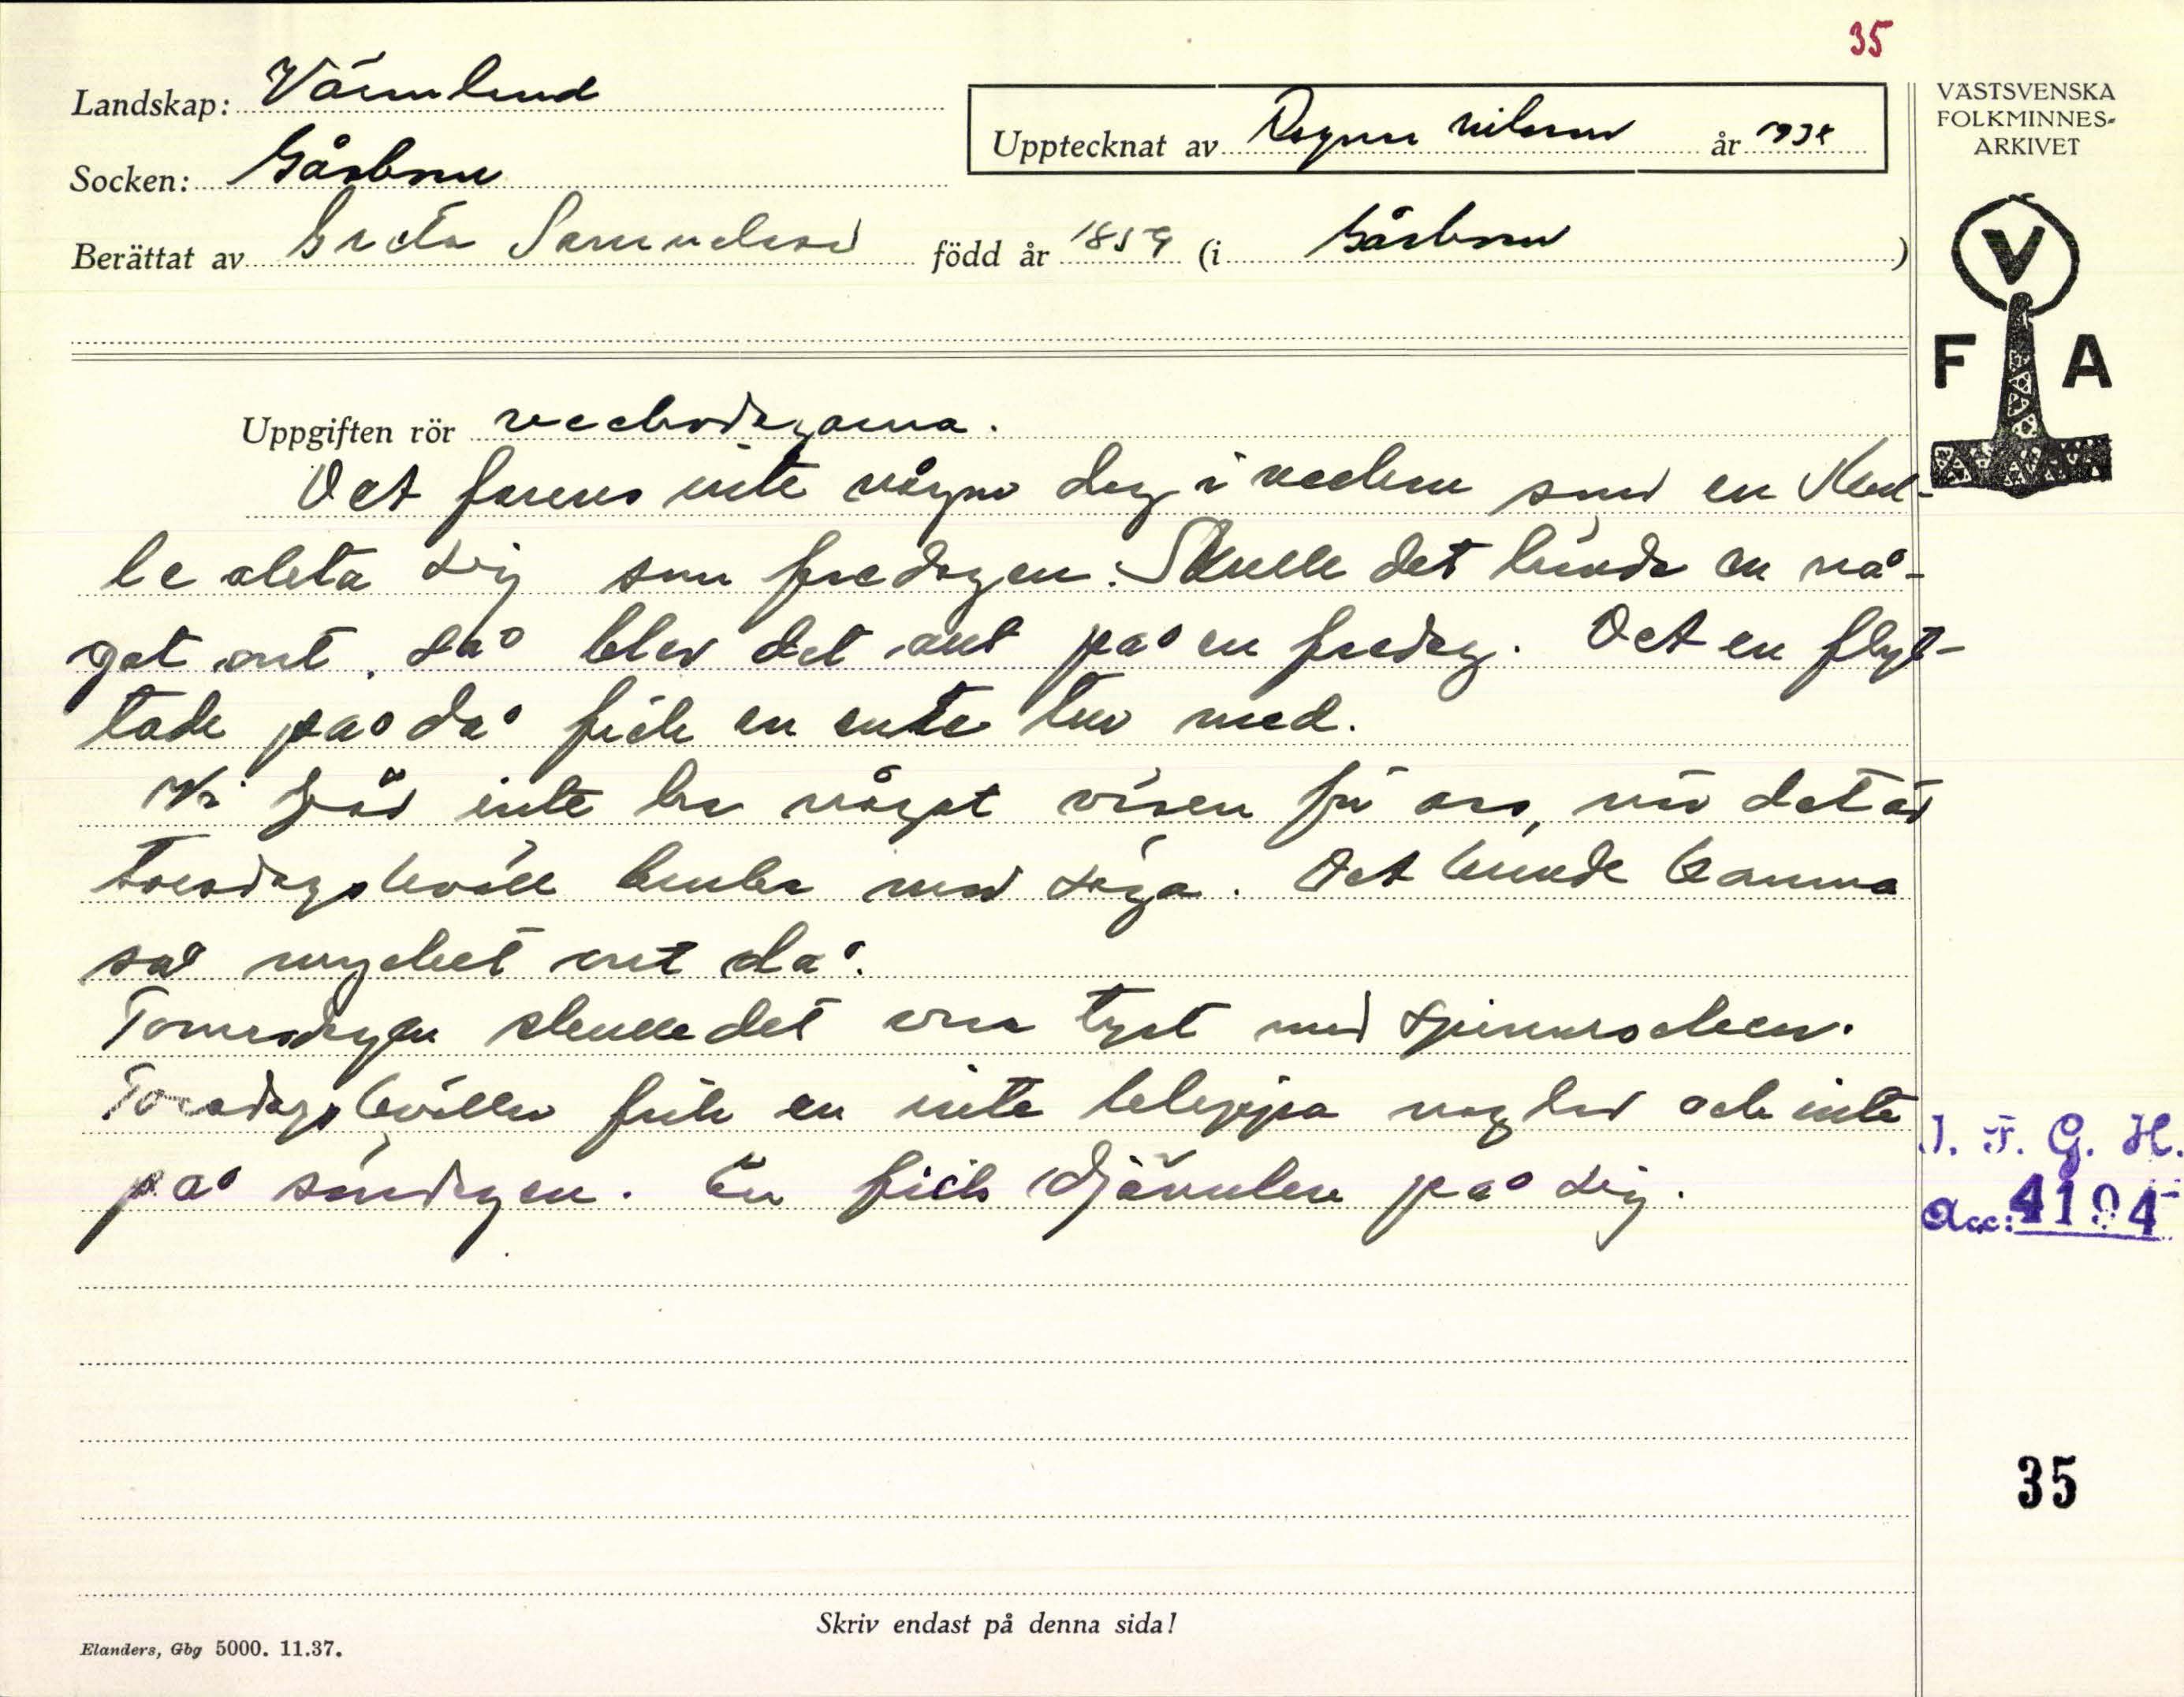 35
Landskap: Värmland
Upptecknat av Ragnar Nilsson år 1938
Socken: Gåsborn
Berättat av Greta Samuelsson född år 1859 (i Gåsborn)
VÄSTSVENSKA
FOLKMINNES-
ARKIVET
V
F A
Uppgiften rör veckodagarna.
Det fanns inte någon dag i veckan som en skul-
le akta sig som fredagen. Skulle det hända en nå-
got ont, då blev det ont på en fredag. Det en flyt-
tade på då fick en inte tur med.
Vi får inte ha något väsen för oss, nu det är
torsdagskväll bruka man säga. Det kunde komma
så mycket ont då.
Torsdagen skulle det vara tyst med spinnrocken.
Torsdagskvällen fick en inte klippa naglar och inte
på söndagen. En fick djävulen på sig.
I. F. G. H.
Acc: 4194
35
Skriv endast på denna sida!
Elanders, Gbg 5000. 11.37.